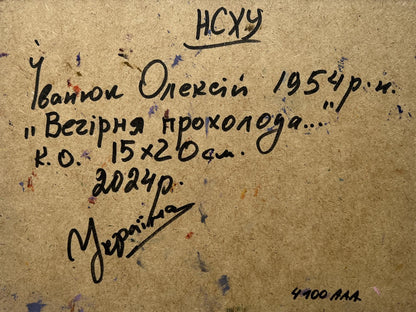 НСХУ
Іванюк Олексій 1954 р.н.
„Вечірня прохолода..."
к.о. 15х20см.
2024р.
Україна
4100 ААА